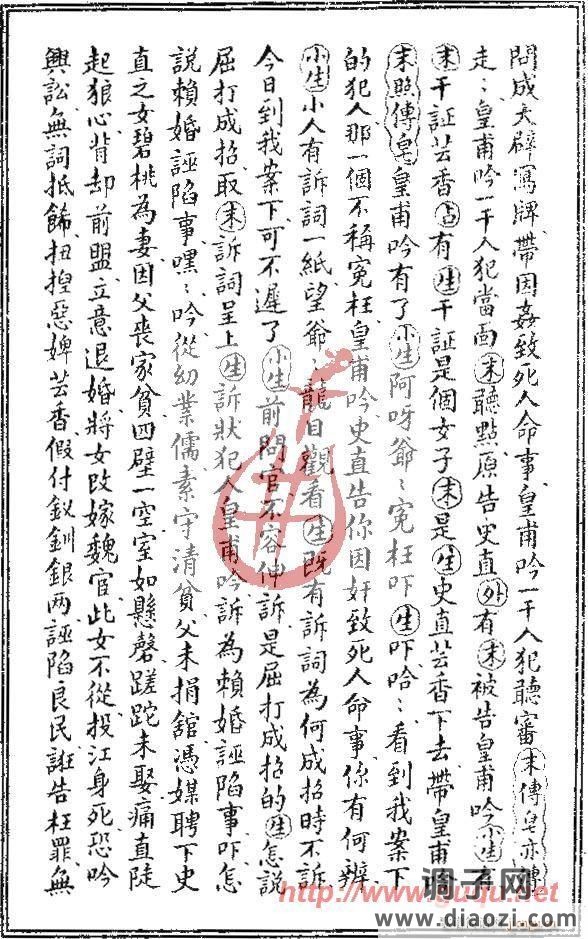 問成大辟寫牌帶因姦致死人命事皇甫吟一干人犯聽審末傳皂亦傳
走〻皇甫吟一干人犯當面末聽點原告史直外有末被告皇甫吟小生有
末干証芸香占有生干証是個女子末是生史直芸香下去帶皇甫
末照傳皂皇甫吟有了小生阿呀爺〻寃枉吓生吓哈〻看到我案下
的犯人那一個不稱寃枉皇甫吟史直告你因奸致死人命事你有何辨
小生小人有訴詞一紙望爺〻龍目觀看生既有訴詞為何成招時不訴
今日到我案下可不遲了小生前問官不容伸訴是屈打成招的生怎說
屈打成招取末訴詞呈上生訴狀犯人皇甫吟訴為賴婚誣陷事吓怎
說賴婚誣陷事嘿〻吟從幼業儒素守清貧父未捐舘憑媒聘下史
直之女碧桃為妻因父喪家貧四壁一空室如懸磬蹉跎未娶痛直陡
起狼心背却前盟立意退婚將女改嫁魏官此女不從投江身死恐吟
興訟無詞抵餙扭揑惡婢芸香假付釵釧銀両誣陷良民誑告枉罪無
http://www.guqu.net
调子网
www.diaozi.com